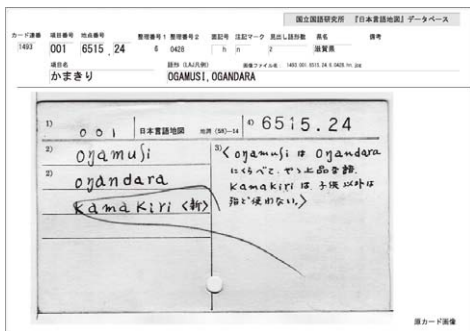 国立国語研究所 『日本言語地図』 データベース
カード連番 項目番号 地点番号 整理番号1 整理番号2 面記号 注記マーク 見出し語形数 県名 備考
1493 001 6515 .24 6 0428 h n 2 滋賀県
項目名 語形 (LAJ凡例) 画像ファイル名: 1493_001_6515_24_6_0428_hn.jpg
かまきり OGAMUSI, OGANDARA
1) 001 日本言語地図 地調 (58)—14 4) 6515.24
2) oŋamuʃi
2) oŋandara
kamakiri 〈新〉
3) 〈oŋamuʃi は oŋandara
にくらべて、やゝ上品な語.
kamakiri は 子供以外は
殆ど使わない.〉
原カード画像